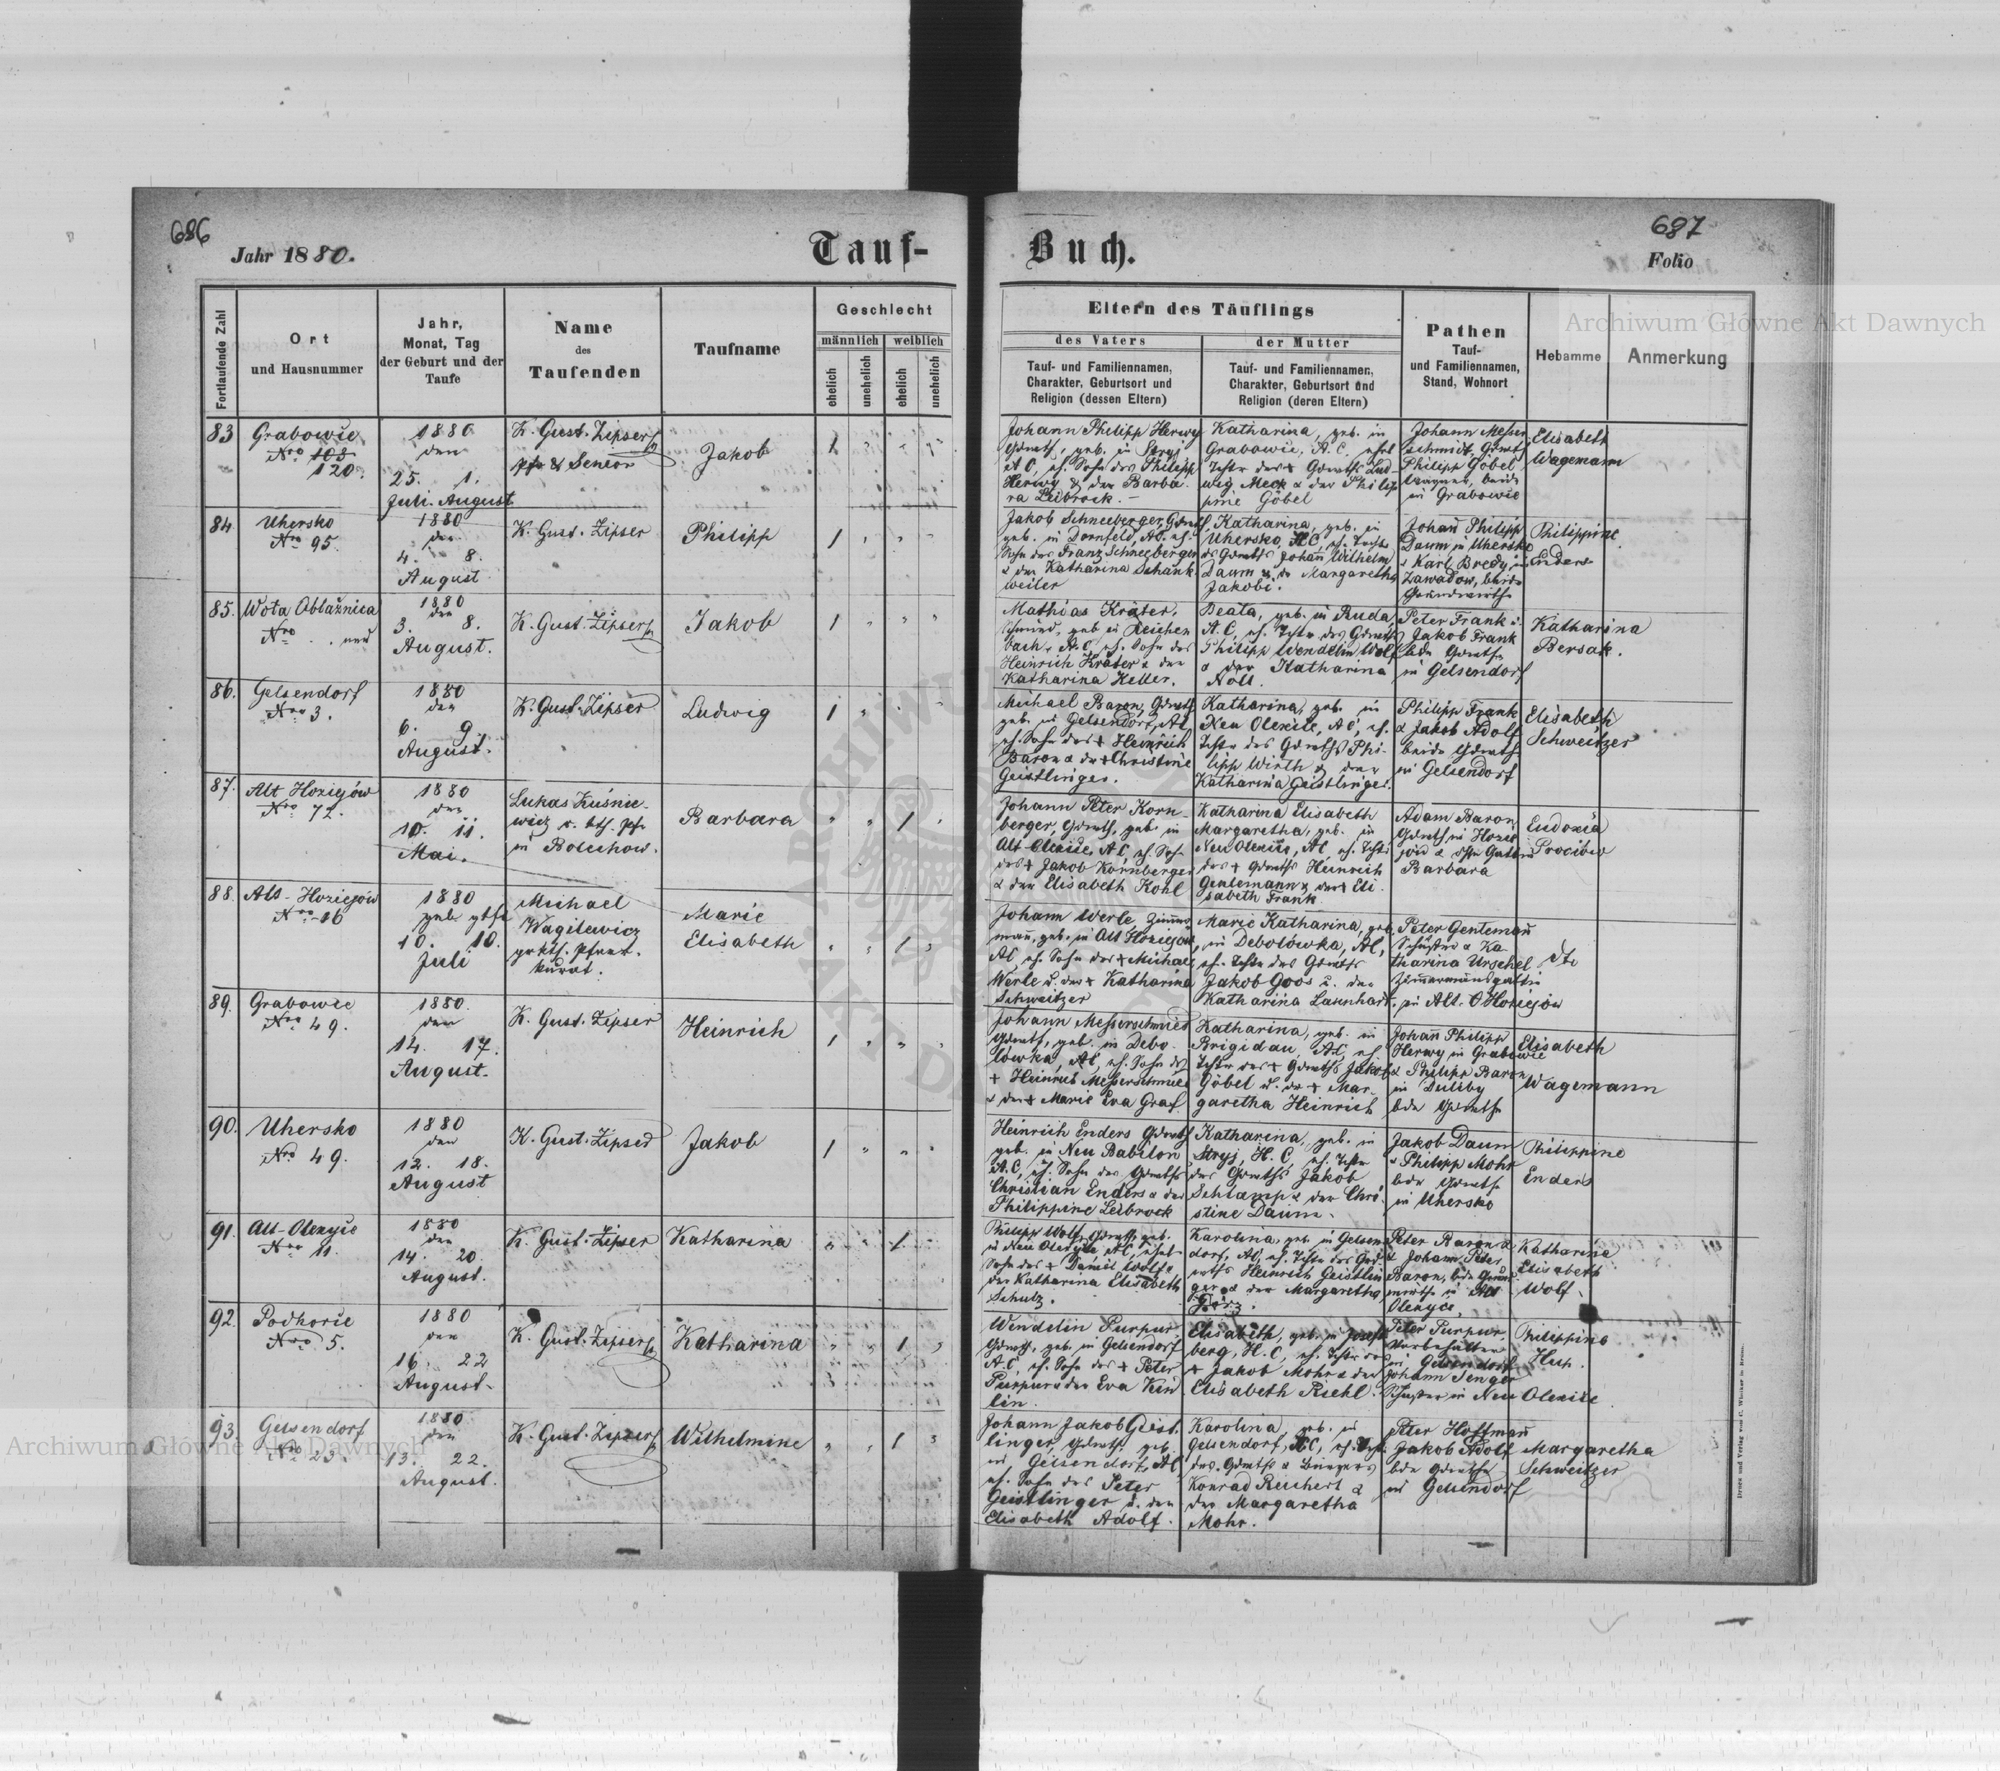 686
687
Jahr 1880.
Tauf-
Buch.
Folio
Archiwum Główne Akt Dawnych
Fortlaufende Zahl
Ort
und Hausnummer
Jahr,
Monat, Tag
der Geburt und der
Taufe
Name
des
Taufenden
Taufname
Geschlecht
männlich weiblich
ehelich unehelich ehelich unehelich
Eltern des Täuflings
des Vaters
Tauf- und Familiennamen,
Charakter, Geburtsort und
Religion (dessen Eltern)
der Mutter
Tauf- und Familiennamen,
Charakter, Geburtsort und
Religion (deren Eltern)
Pathen
Tauf-
und Familiennamen,
Stand, Wohnort
Hebamme
Anmerkung
83
Grabowie
Nro 108
120.
1880
den
25. 1.
Juli. August
K. Gust. Zipser
Pfr & Senior
Jakob
1
Johann Philipp Herwy
Gdwrth, geb. in Stryj
A C, eh. Sohn des Philipp
Herwy & der Barba-
ra Leibrock. —
Katharina, geb. in
Grabowie, A. C, ehel
Tchtr des + Gdwrths Lud-
wig Meck & der Philip
pine Göbel
Johann Messer
schmidt, Gdwrth
Philipp Göbel
Wagner, beide
in Grabowie
Elisabeth
Wagemann
84.
Uhersko
Nro 95.
1880
den
4. 8.
August
K. Gust. Zipser
Philipp
1
Jakob Schneeberger, Gdwrth,
geb. in Dornfeld, AC. eh.
Sohn des Franz Schneeberger
& der Katharina Schank-
weiler
Katharina, geb. in
Uhersko, HC, eh. Tochtr
ds Gdwrths Johann Wilhelm
Daum & dr Margaretha
Jakobi.
Johann Philipp
Daum, in Uhersko
& Karl Bredy, in
Zawadow, beide
Grundwirthe
Philippine
Enders
85.
Wola Oblaźnica
Nro . . neu
1880
den
3. 8.
August.
K. Gust. Zipser
Jakob
1
Mathias Kräter,
Schmied, geb. in Reichen
bach, A. C, eh. Sohn des
Heinrich Kräter & der
Katharina Keller.
Beata, geb. in Ruda,
A. C, eh. Tchtr des Gdwrths
Philipp Wendelin Wolf
& der Katharina
Noll.
Peter Frank &
Jakob Frank
bde Gdwrthe
in Gelsendorf
Katharina
Bersak.
86.
Gelsendorf
Nro 3.
1880
den
6. 9.
August.
K. Gust. Zipser
Ludwig
1
Michael Baron, Gdwrth
geb. in Gelsendorf, AC,
eh. Sohn des + Heinrich
Baron & dr + Christine
Geistlinger.
Katharina, geb. in
Neu Olexice, AC, eh.
Tchtr des Gdwrths Phi-
lipp Wirth & der
Katharina Geistlinger.
Philipp Frank
& Jakob Adolf
beide Gdwrth
in Gelsendorf
Elisabeth
Schweitzer
87.
Alt Hoziejów
Nro 72.
1880
den
10. 11.
Mai.
Lukas Kuśnie-
wicz r. kth. Pfr
in Bolechow.
Barbara
1
Johann Peter Korn-
berger, Gdwrth, geb. in
Alt-Olexice, AC, eh. Sohn
des + Jakob Kornberger
& der Elisabeth Kohl
Katharina Elisabeth
Margaretha, geb. in
Neu Olexice, AC eh. Tchtr
des + Gdwrths Heinrich
Gentemann & der + Eli-
sabeth Frank
Adam Baron,
Gdwrth in Hozie
jów & dssn Gattin
Barbara
Eudoxia
88.
Alt-Hoziejów
Nro 16
1880
geb. gtft
10. 10.
Juli
Michael
Wagilewicz
gr kth. Pfarr-
kurat.
Marie
Elisabeth
1
Johann Werle Zimmer
mann, geb. in Alt Hoziejów,
AC, eh. Sohn des + Michael
Werle u. der + Katharina
Schweitzer
Marie Katharina, geb.
in Debolówka, AC,
eh. Tchtr des Gdwrths
Jakob Goos u. der
Katharina Lasenhart.
Peter Gentemann
Schuster & Ka-
tharina Urschel
Zimmermannsgattin
in Alt. Hoziejów
dto
89.
Grabowie
Nro 49.
1880.
den
14. 17.
August.
K. Gust. Zipser
Heinrich
1
Johann Messerschmied
Gdwrth, geb. in Debo-
lówka, AC, eh. Sohn ds
+ Heinrich Messerschmied
& der + Marie Eva Graf.
Katharina, geb. in
Brigidau, AC, eh.
Tchtr des + Gdwrths Jakob
Göbel u. dr + Mar-
garetha Heinrich
Johann Philipp
Herwy in Grabowie
& Philipp Baron
in Duliby
bde Gdwrthe
Elisabeth
Wagemann
90.
Uhersko
Nro 49.
1880
den
12. 18.
August
K. Gust. Zipser
Jakob
1
Heinrich Enders Gdwrth
geb. in Neu Babilon
A. C, eh. Sohn des Gdwrths
Christian Enders & der
Philippine Leibrock
Katharina, geb. in
Stryj, H. C, eh. Tchtr
des Gdwrths Jakob
Schlamp & der Chri-
stine Daum.
Jakob Daum
& Philipp Mohr
bde Gdwrthe
in Uhersko
Philippine
Enders
91.
Alt-Olexyce
Nro 11.
1880
den
14. 20.
August.
K. Gust. Zipser
Katharina
1
Philipp Wolf, Gdwrth, geb.
in Neu Olexyce, AC, ehel.
Sohn des + Daniel Wolf &
der Katharina Elisabeth
Schulz.
Karolina, geb. in Gelsen
dorf, AC, eh. Tchtr des Gd-
wrths Heinrich Geistlin
ger & der Margaretha
Peter Baron &
Johann Peter
Baron, bde Grund
wirthe in Alt
Olexyce.
Katharina
Elisabeth
Wolf.
92.
Podhorie
Nro 5.
1880
den
16. 22
August.
K. Gust. Zipser
Katharina
1
Wendelin Purpur,
Gdwrth, geb. in Gelsendorf
A. C, eh. Sohn des + Peter
Purpur & der Eva Kin
lin.
Elisabeth, geb. in Josefs
berg, H. C, eh. Tchtr des
+ Jakob Mohr & der
Elisabeth Riehl.
Peter Purpur,
in Gelsendorf
Johann Senger
Schuster in Neu Olexice.
Philippine
Hup.
93.
Gelsendorf
Nro 23.
1880.
den
13. 22.
August.
K. Gust. Zipser
Wilhelmine
1
Johann Jakob Geist-
linger, Gdwrth, geb.
in Gelsendorf, AC,
eh. Sohn des Peter
Geistlinger u. der
Elisabeth Adolf.
Karolina, geb. in
Gelsendorf, AC, eh. Tcht.
des Gdwrths &
Konrad Reichert &
der Margaretha
Mohr.
Peter Hoffmann
Jakob Adolf
bde Gdwrthe
in Gelsendorf
Margaretha
Schweitzer
Archiwum Główne Akt Dawnych